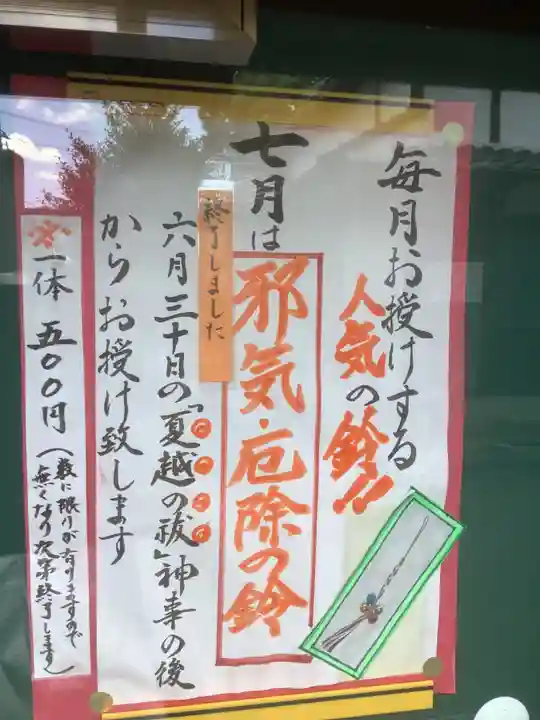 毎月お授けする
人気の鈴!!
七月は
邪気・厄除の鈴
終了しました
六月三十日の「夏越の祓」神事の後
からお授け致します
一体 五〇〇円(数に限りが有りますので
無くなり次第終了します)